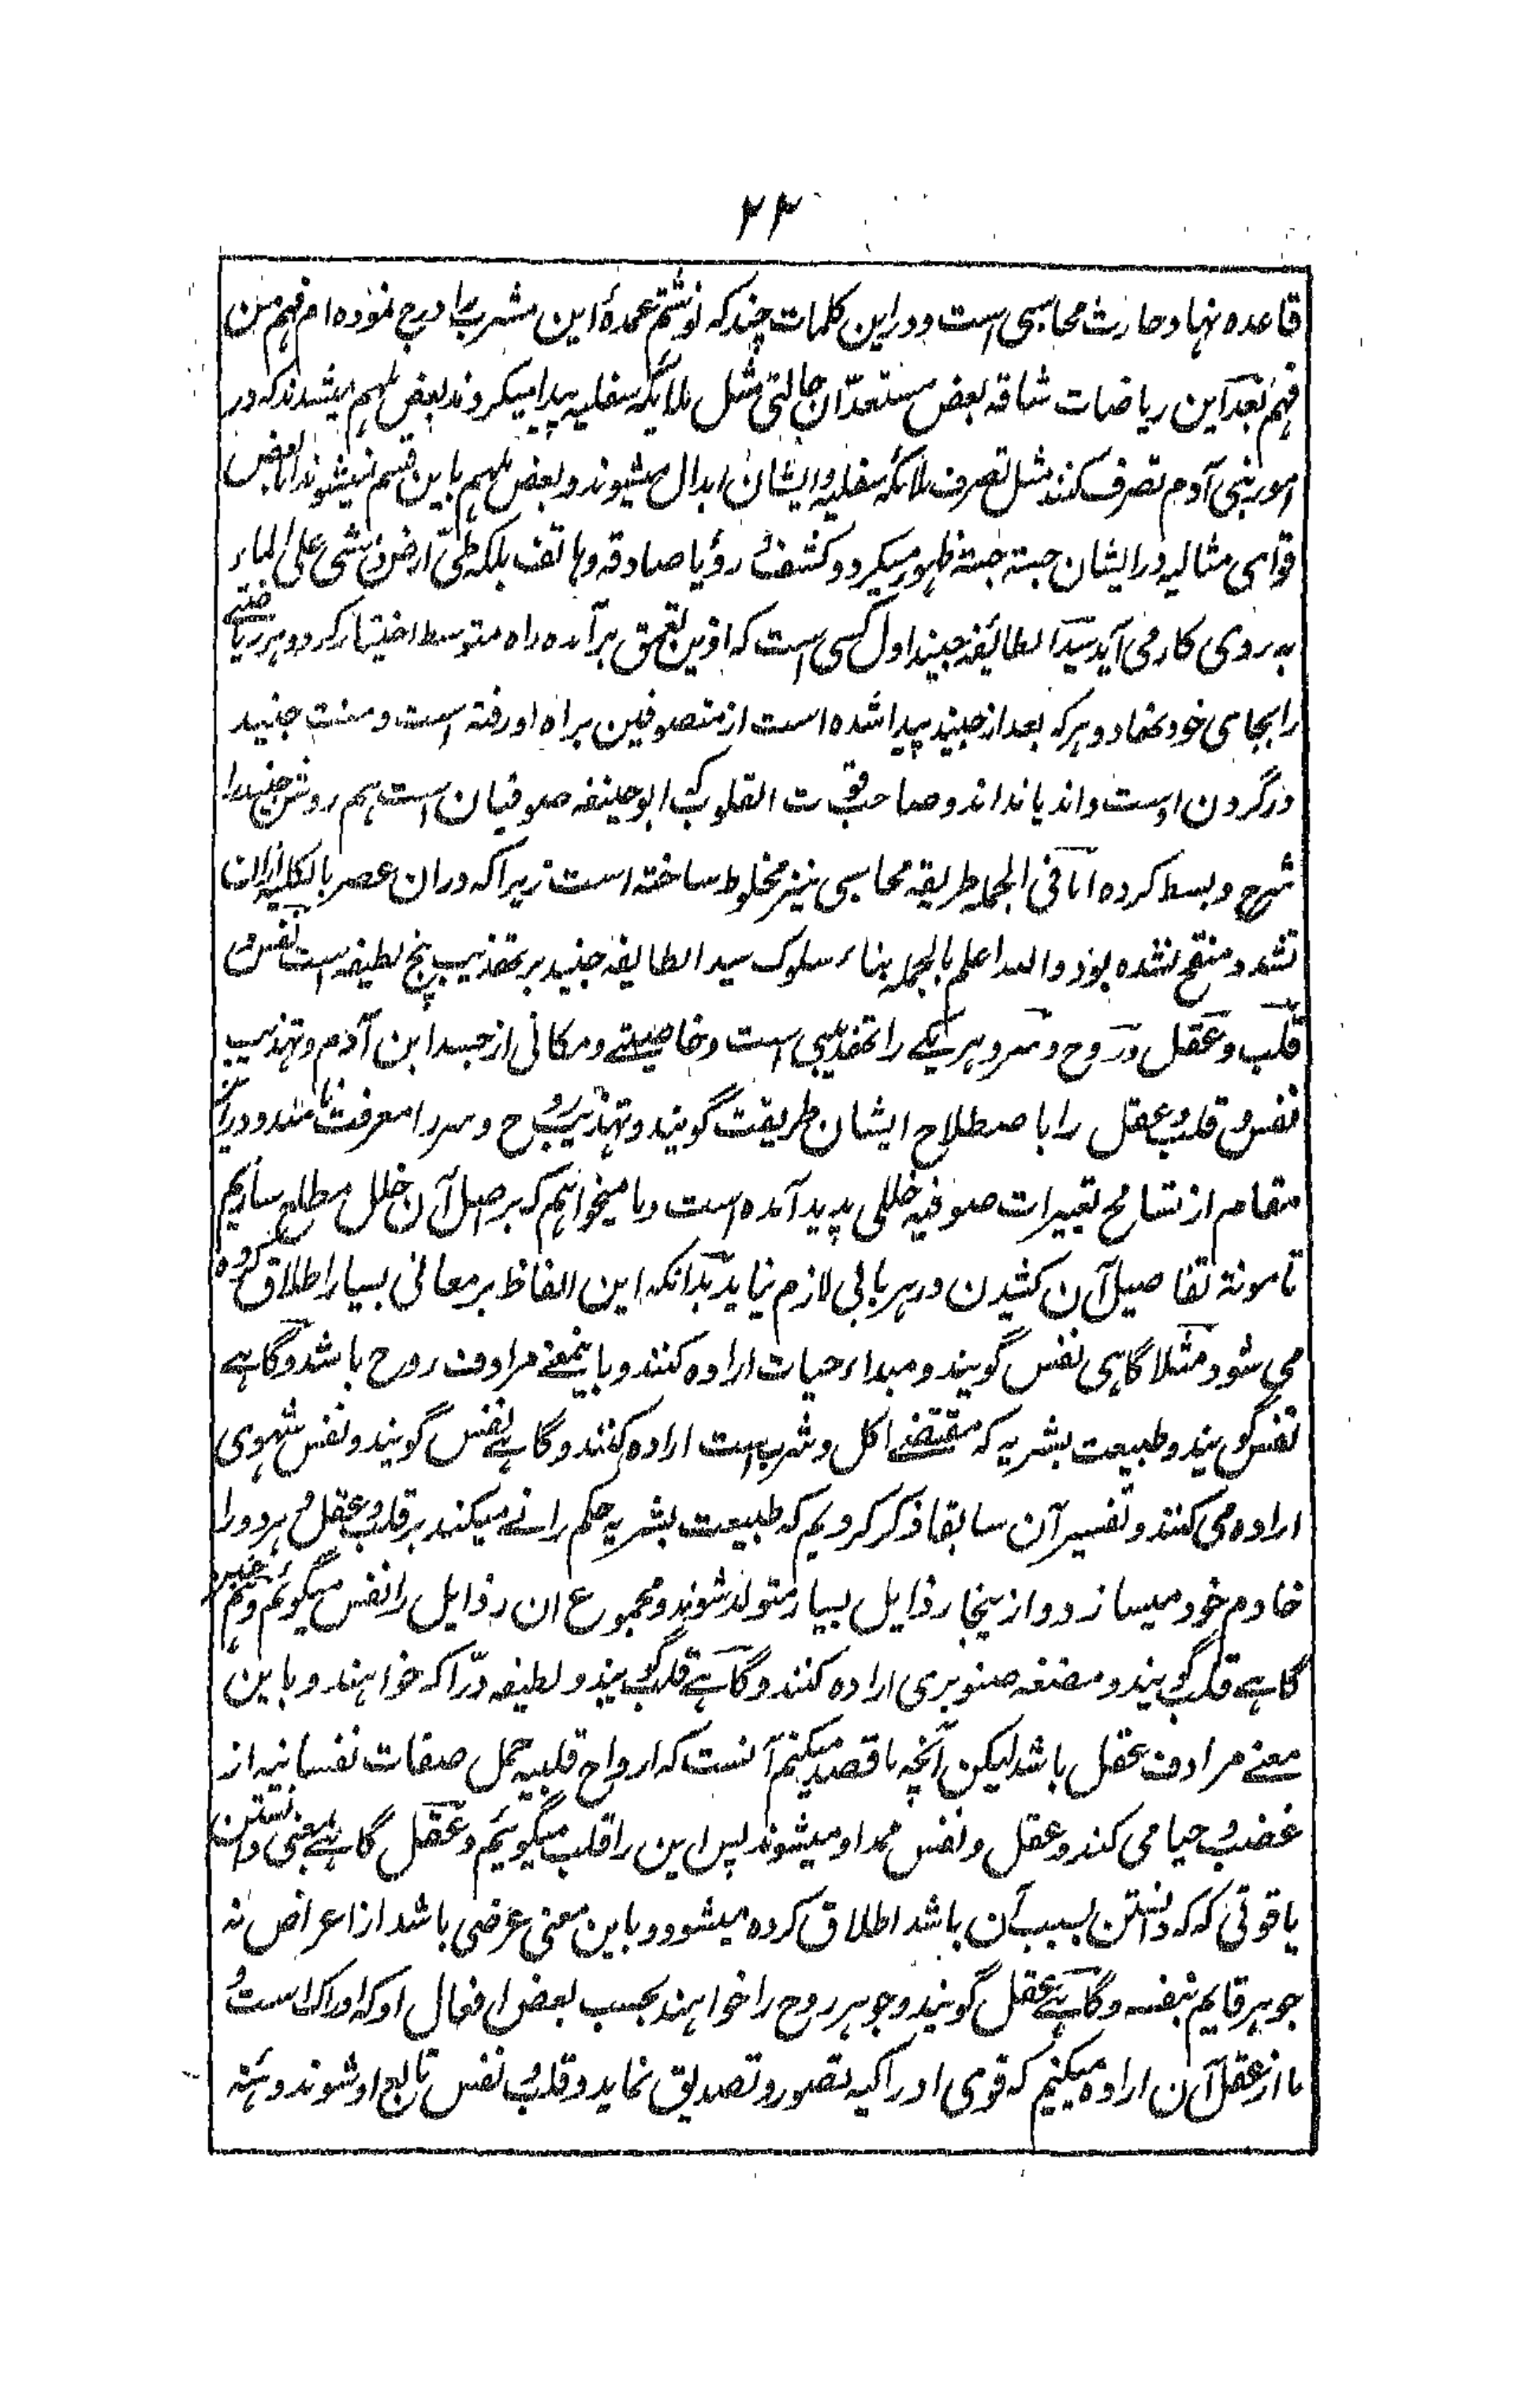 ۲۳
قاعده نهاد حارث محاسبی است و در این کلمات چند که نوشتم عمدهٔ این مشرب را درج نموده ام فهم من
فهم بعد این ریاضات شاقه بعض مستعدان حالتی مثل ملائکه سفلیه پیدا میکردند بعض ملهم میشدند که در
امور بنی آدم تصرف کنند مثل تصرف ملائکه سفلیه و ایشان ابدال میشوند و بعض ملهم باین قسم نمیشوند اما بعض
قوای مثالیه در ایشان جسته جسته ظهور میکرد و کشف و رؤیا صادقه و هاتف بلکه طی ارض و مشی علی الماء
به روی کار می آید سید الطائفه جنید اول کسی است که ازین تعمق برآمده راه متوسط اختیار کرد و هر ریاضتے
را بجای خود نهاد و هرکه بعد از جنید پیدا شده است از متصوفین براه او رفته است و منت جنید
در گردن اوست داند یا نداند و صاحب قوت القلوب که ابو حنیفه صوفیان است هم روش جنید را
شرح و بسط کرده اما فی الجمله طریقه محاسبی نیز مخلوط ساخته است زیرا که دران عصر بالکلیه ازان
نشد و منقح نشده بود والله اعلم بالجمله بناء سلوک سید الطایفه جنید بر تهذیب پنج لطیفه است نفس و
قلب و عقل و روح و سر و هر یکے را تهذیبی است و خاصیتے و مکانی از جسد ابن آدم و تهذیب
نفس و قلب و عقل را باصطلاح ایشان طریقت گویند و تهذیب روح و سر را معرفت نامند و درین
مقام از تسامح تعبیرات صوفیه خللی پدید آمده است و ما میخواهیم که بر اصل آن خلل مطلع سازیم
تا مونة تفاصیل آن کشیدن در هر بابی لازم نیاید بدانکه این الفاظ بر معانی بسیار اطلاق کرده
می شود مثلا گاهی نفس گویند و مبداء حیات اراده کنند و باینمعنے مرادف روح باشد و گاہے
نفس گویند و طبیعت بشریه که مقتضے اکل و شرب است اراده کنند و گاہے نفس گویند و نفس شهوی
اراده می کنند و تفسیر آن سابقا ذکر کردیم که طبیعت بشریه حکم رانے میکند بر قلب و عقل و هر دو را
خادم خود میسازد و از ینجا رذایل بسیار متولد شوند و مجموع ان رذایل را نفس میگوئیم و هم
گاہے قلب گویند و مضغه صنوبری اراده کنند و گاہے قلب گویند و لطیفه درّاکه خواهند و باین
معنے مرادف عقل باشد لیکن آنچه ما قصد میکنیم آنست که ارواح قلبیه حمل صفات نفسانیه از
غضب و حیا می کند و عقل و نفس ممد او میشوند پس این را قلب میگوئیم و عقل گاہے بمعنی دانستن
یا قوتی که که دانستن بسبب آن باشد اطلاق کرده میشود و باین معنی عرضی باشد از اعراض نه
جوهر قایم بنفسه و گاہے عقل گویند و جوهر روح را خواهند بحسب بعض افعال او که ادراک است و
ما از عقل آن اراده میکنیم که قوی ادراکیه تصور و تصدیق نماید و قلب و نفس تابع او شوند و هئه